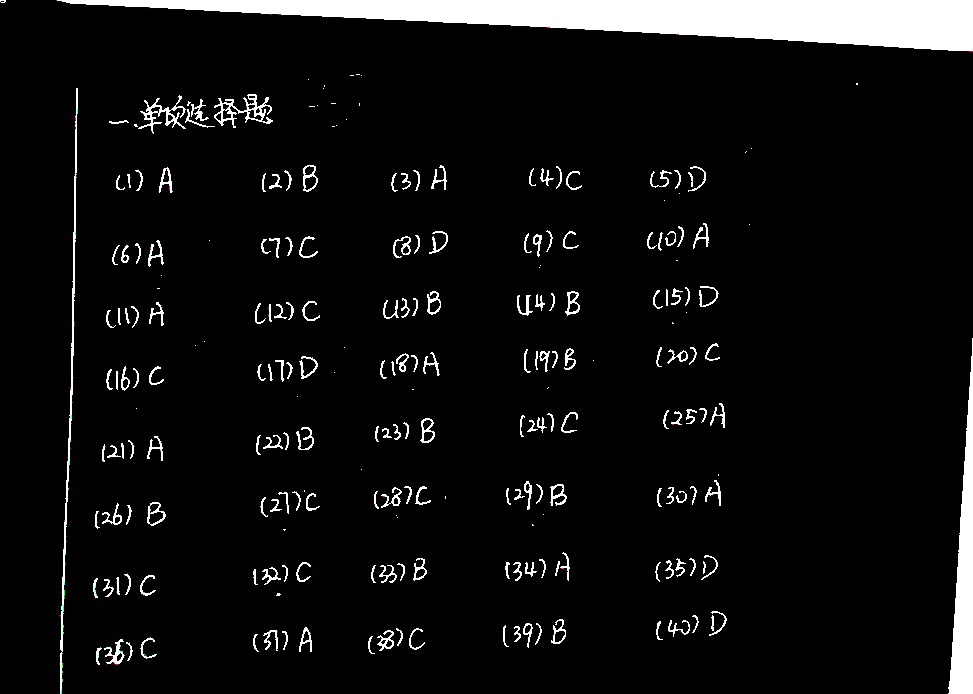 一.单项选择题
(1) A (2) B (3) A (4) C (5) D
(6) A (7) C (8) D (9) C (10) A
(11) A (12) C (13) B (14) B (15) D
(16) C (17) D (18) A (19) B (20) C
(21) A (22) B (23) B (24) C (25) A
(26) B (27) C (28) C (29) B (30) A
(31) C (32) C (33) B (34) A (35) D
(36) C (37) A (38) C (39) B (40) D